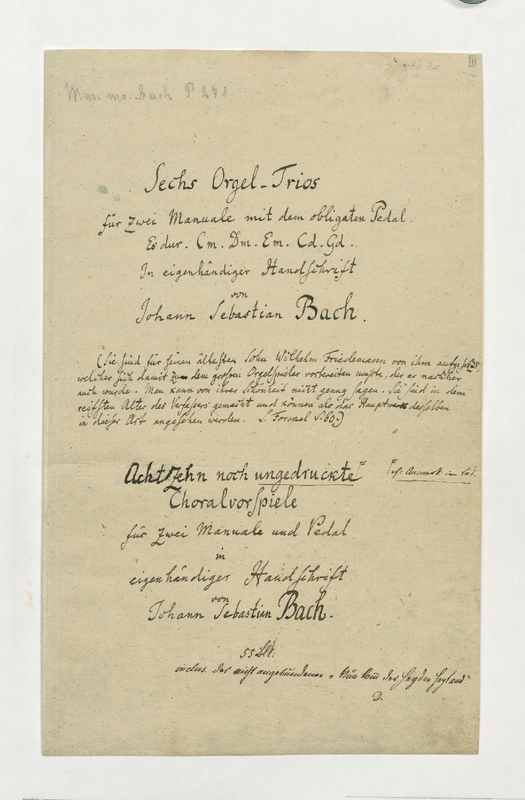 III
Mus. ms. Bach P 271
Sechs Orgel-Trios
für zwei Manuale mit dem obligaten Pedal.
Esdur. Cm. Dm. Em. Cd. Gd.
In eigenhändiger Handschrift
von
Johann Sebastian Bach.
(Sie sind für seinen ältesten Sohn Wilhelm Friedemann von ihm aufgesetzt,
welcher sich damit zu dem großen Orgelspieler vorbereiten mußte, der er nachher
auch wurde. Man kann von ihrer Schönheit nicht genug sagen. Sie sind in dem
reifsten Alter des Verfassers gemacht und können als das Hauptwerk desselben
in dieser Art angesehen werden. S. Forkel S. 60.)
Achtzehn noch ungedruckte
Choralvorspiele
für zwei Manuale und Pedal
in
eigenhändiger Handschrift
von
Johann Sebastian Bach.
55 Bll.
inclus. des nicht angebundenen „Nun kom̅ der Heyden Heyland“
D.